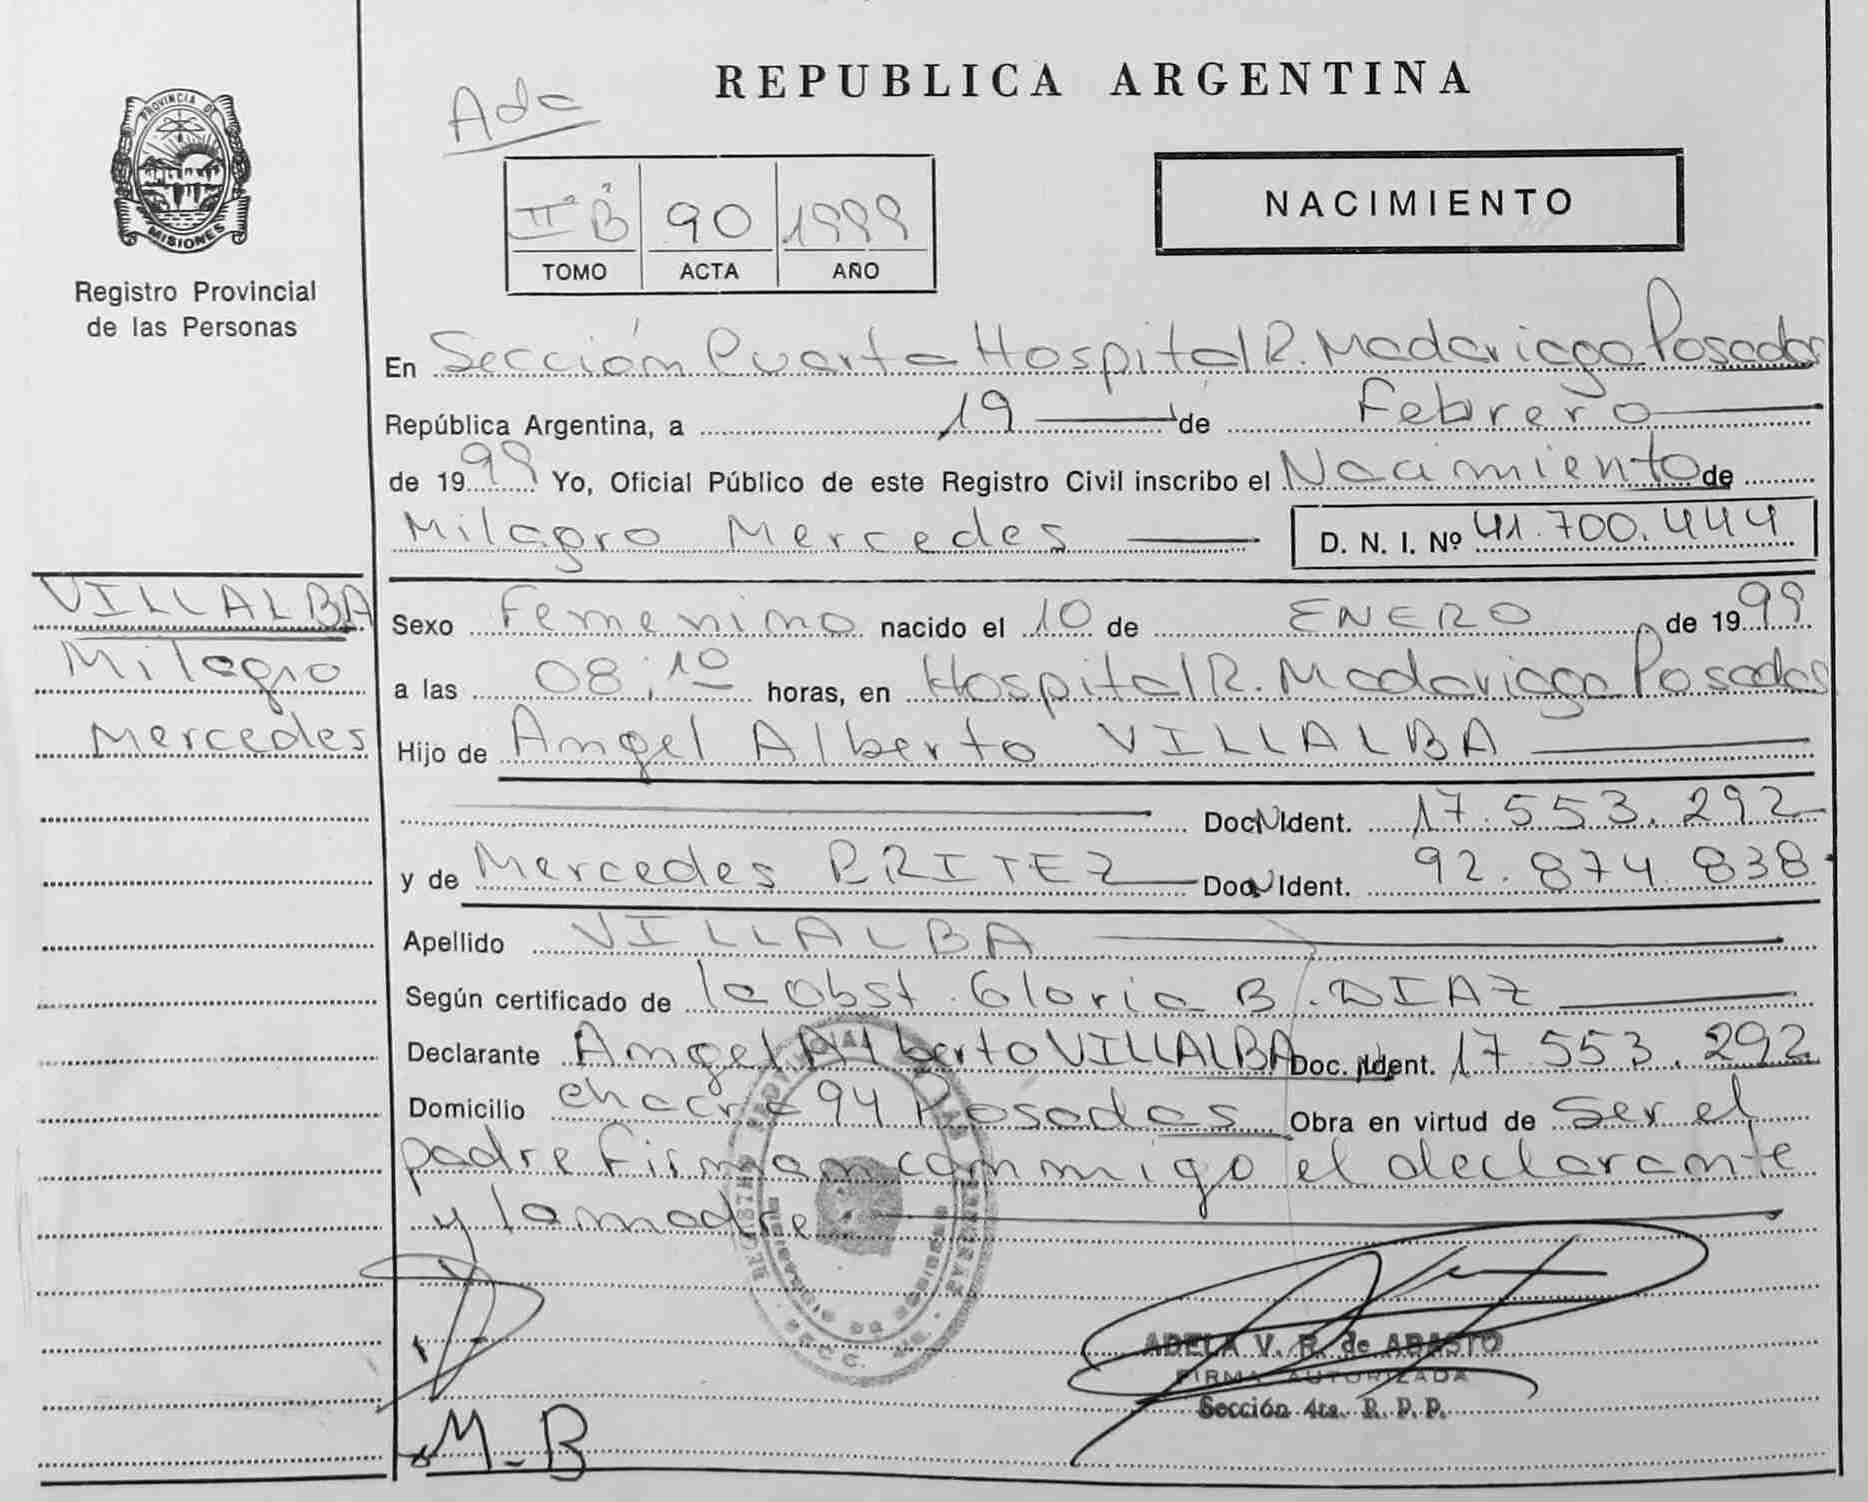 REPUBLICA ARGENTINA
Ada
PROVINCIA DE
MISIONES
Registro Provincial
de las Personas
IIº B 90 1999
TOMO ACTA AÑO
NACIMIENTO
En Sección Cuarta Hospital R. Madariaga Posadas
República Argentina, a 19 de Febrero
de 1999 Yo, Oficial Público de este Registro Civil inscribo el Nacimiento de
Milagro Mercedes D. N. I. Nº 41.700.444
VILLALBA
Milagro
Mercedes
Sexo Femenino nacido el 10 de ENERO de 1999
a las 08:10 horas, en Hospital R. Madariaga Posadas
Hijo de Angel Alberto VILLALBA
Doc N Ident. 17.553.292
y de Mercedes BRITEZ Doc N Ident. 92.874.838
Apellido VILLALBA
Según certificado de la Obst. Gloria B. DIAZ
Declarante Angel Alberto VILLALBA Doc. N Ident. 17.553.292
Domicilio chacra 94 Posadas Obra en virtud de ser el
padre firman conmigo el declarante
y la madre
ADELA V. R. de ABASTO
FIRMA AUTORIZADA
Sección 4ta. R. P. P.
M-B